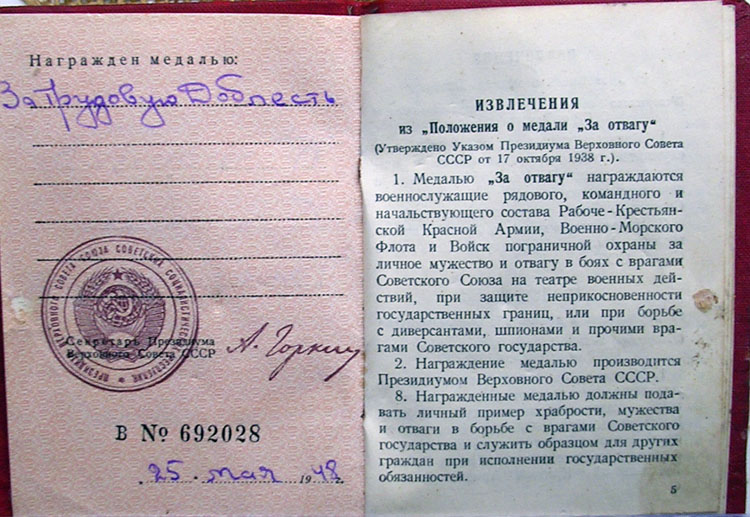 Награжден медалью:
За Трудовую Доблесть
ПРЕЗИДИУМ ВЕРХОВНОГО СОВЕТА СОЮЗА СОВЕТСКИХ СОЦИАЛИСТИЧЕСКИХ РЕСПУБЛИК
Секретарь Президиума
Верховного Совета СССР
А. Горкин
В № 692028
25 мая 1948г.
ИЗВЛЕЧЕНИЯ
из „Положения о медали „За отвагу“
(Утверждено Указом Президиума Верховного Совета
СССР от 17 октября 1938 г.).
1. Медалью „За отвагу“ награждаются
военнослужащие рядового, командного и
начальствующего состава Рабоче-Крестьян-
ской Красной Армии, Военно-Морского
Флота и Войск пограничной охраны за
личное мужество и отвагу в боях с врагами
Советского Союза на театре военных дей-
ствий, при защите неприкосновенности
государственных границ, или при борьбе
с диверсантами, шпионами и прочими вра-
гами Советского государства.
2. Награждение медалью производится
Президиумом Верховного Совета СССР.
8. Награжденные медалью должны пода-
вать личный пример храбрости, мужества
и отваги в борьбе с врагами Советского
государства и служить образцом для других
граждан при исполнении государственных
обязанностей.
5